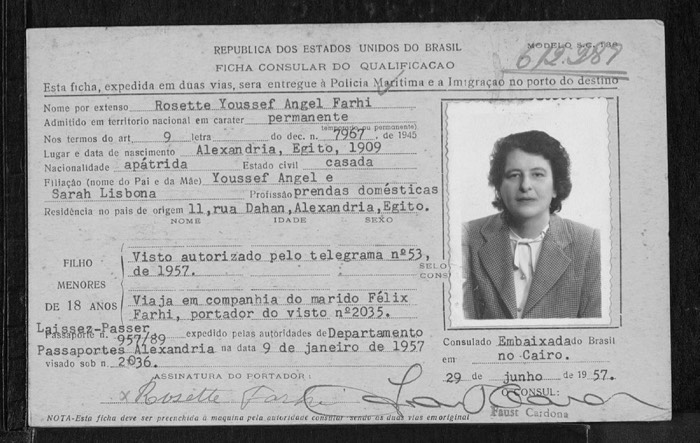 REPUBLICA DOS ESTADOS UNIDOS DO BRASIL
MODELO S.C. 138
FICHA CONSULAR DO QUALIFICACAO
612.987
Esta ficha, expedida em duas vias, sera entregue à Policia Maritima e a Imigraçao no porto do destino
Nome por extenso Rosette Youssef Angel Farhi
Admitido em territorio nacional em carater permanente
(temporario ou permanente)
Nos termos do art. 9 letra do dec. n. 7967 de 1945
Lugar e data de nascimento Alexandria, Egito, 1909
Nacionalidade apátrida Estado civil casada
Filiação (nome do Pai e da Mãe) Youssef Angel e
Sarah Lisbona Profissão prendas domésticas
Residência no pais de origem 11,rua Dahan,Alexandria,Egito.
NOME IDADE SEXO
FILHO
MENORES
DE 18 ANOS
Visto autorizado pelo telegrama nº53,
de 1957.
SELO
CONS
Viaja em companhia do marido Félix
Farhi, portador do visto nº2035.
Laissez-Passer
Passaporte n. 957/89 expedido pelas autoridades de Departamento
Passaportes Alexandria na data 9 de janeiro de 1957
visado sob n. 2036.
Consulado Embaixada do Brasil
em no Cairo.
29 de junho de 1957.
ASSINATURA DO PORTADOR:
x Rosette Farhi
O CONSUL:
Faust Cardona
NOTA-Esta ficha deve ser preenchida à maquina pela autoridade consular sendo as duas vias em original